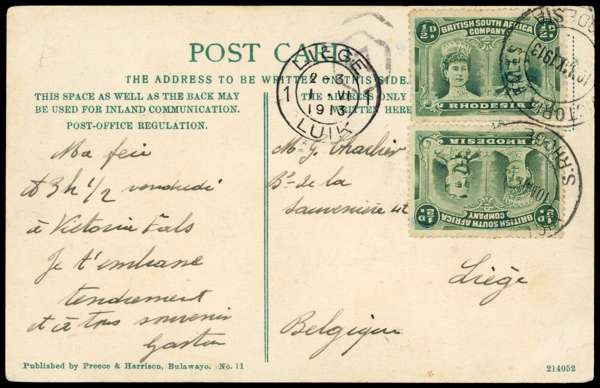 POST CARD
THE ADDRESS TO BE WRITTEN ON THIS SIDE.
THIS SPACE AS WELL AS THE BACK MAY
BE USED FOR INLAND COMMUNICATION.
POST-OFFICE REGULATION.
THE ADDRESS ONLY
WRITTEN HERE
LIEGE
2-3
1-VI
1913
1
LUIK
½D.
½D.
BRITISH SOUTH AFRICA
COMPANY
RHODESIA
RHODESIA
½D.
½D.
BRITISH SOUTH AFRICA
COMPANY
S. RHODE
Ma
à 3 h 1/2 vendredi
à Victoria Fals
Je t'embrasse
tendrement
et à tous souvenirs
Gaston
M. G. Charlier
Bd de la
Sauvenière 42
Liège
Belgique
Published by Preece & Harrison, Bulawayo. No. 11
214052